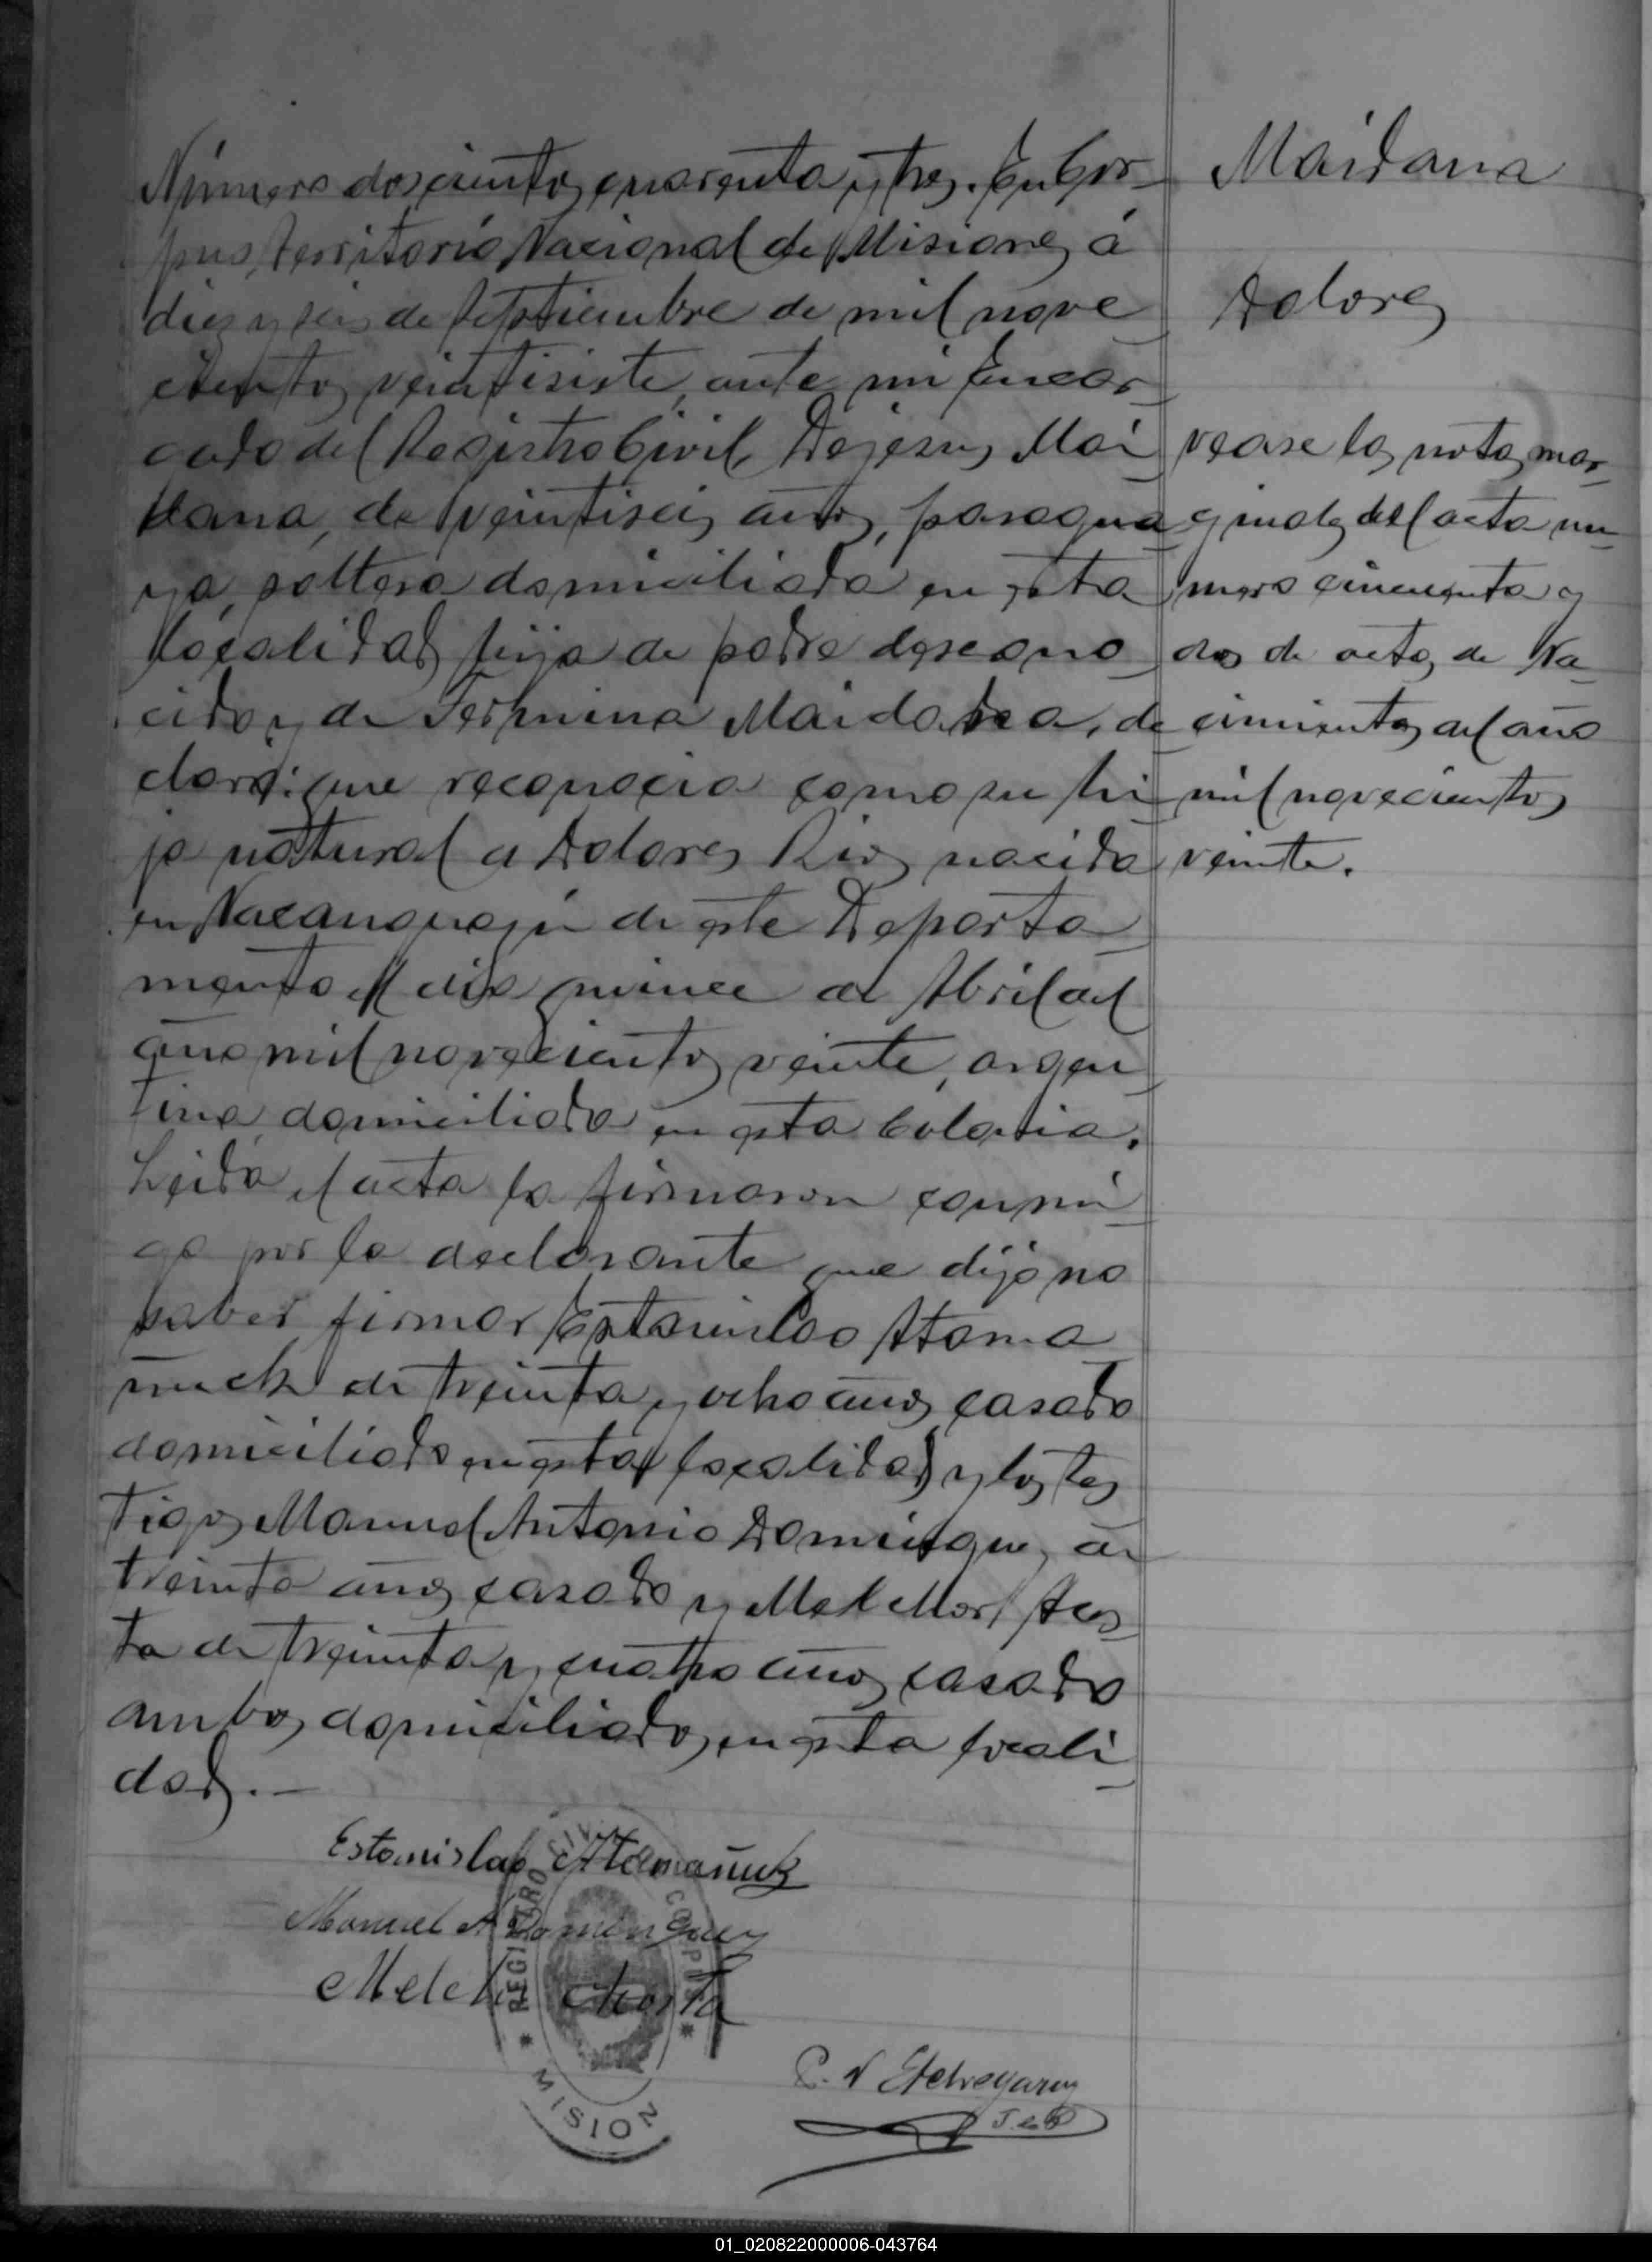 Número doscientos cuarenta y tres. En Cor-
pus, Territorio Nacional de Misiones, á
diez y seis de Septiembre de mil nove
cientos veintisiete, ante mi Encar-
gado del Registro Civil, Dejesus Mai
dana, de veintiseis años, paragua
ya, soltera domiciliada en esta
localidad hija de padre descono-
cido y de Fermina Maidana, de
claró: que reconocia como su hi-
ja natural a Dolores Rios nacida
en Ñacanguazú de este Departa-
mento el dia quince de Abril del
año mil novecientos veinte, argen-
tina, domiciliada en esta Colonia.
Leida el acta la firmaron conmi-
go por la declarante que dijo no
saber firmar Estanislao Atama
ñuck de treinta y ocho años casado
domiciliado en esta localidad y los tes
tigos Manuel Antonio Dominguez de
treinta años casado y Melchor Acos-
ta de treinta y cuatro años casado
ambos domiciliados en esta locali-
dad.-
Maidana
Dolores
vease las notas mar-
ginales del acta nu-
mero cincuenta y
dos de actas de Na-
cimientos del año
mil novecientos
veinte.
Estanislao Atamañuk
Manuel A Dominguez
Melchor Acosta
REGISTRO CIVIL CORPUS
* MISIONES *
P. N Etchegaray
01_020822000006-043764